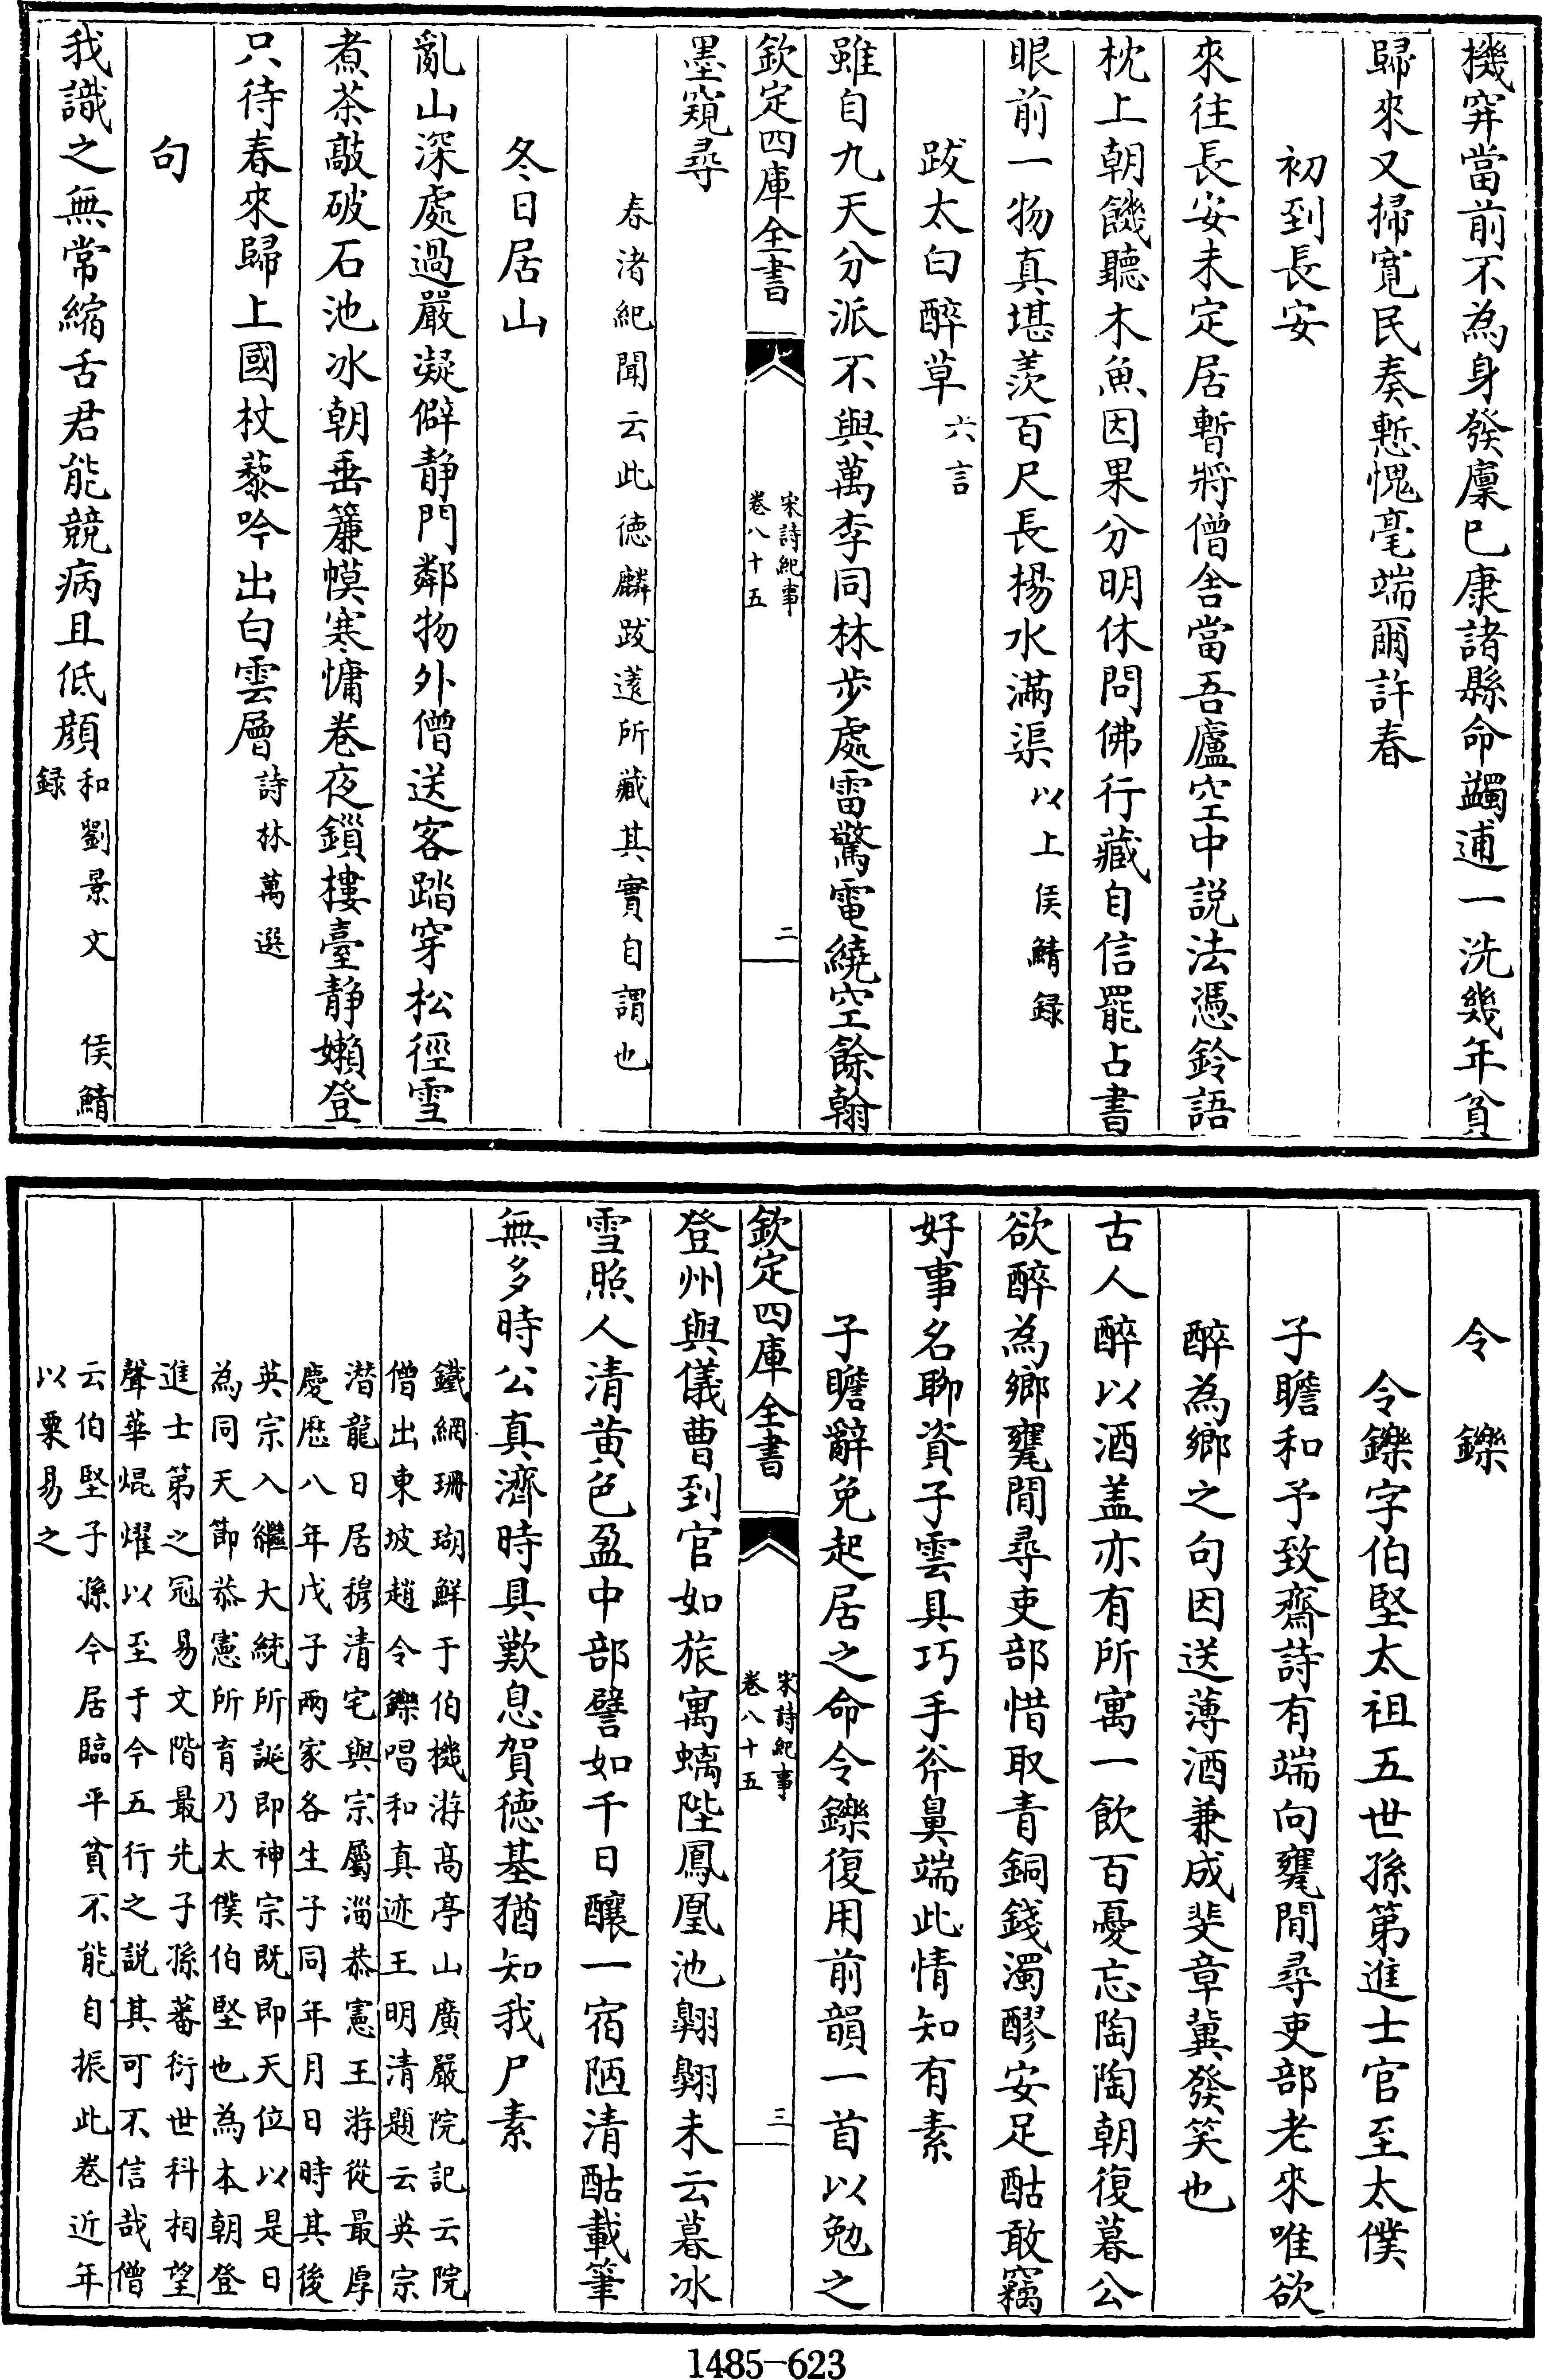 機穽當前不為身發廪已康諸縣命蠲逋一洗幾年貧
歸來又掃寛民奏慙愧毫端爾許春
初到長安
來往長安未定居暫將僧舍當吾廬空中説法憑鈴語
枕上朝饑聽木魚因果分明休問佛行藏自信罷占書
眼前一物真堪羨百尺長楊水滿渠以上侯鯖録
跋太白醉草六言
雖自九天分派不與萬李同林步處雷驚電繞空餘翰
欽定四庫全書
宋詩紀事
卷八十五
二
墨窺尋
春渚紀聞云此徳麟跋薳所藏其實自謂也
冬日居山
亂山深處過嚴凝僻静門鄰物外僧送客踏穿松徑雪
煮茶敲破石池冰朝垂簾幙寒慵卷夜鎻樓臺静嬾登
只待春來歸上國杖藜吟出白雲層詩林萬選
句
我識之無常縮舌君能競病且低顔和劉景文 侯鯖
録
令鑠
令鑠字伯堅太祖五世孫第進士官至太僕
子瞻和予致齋詩有端向甕閒尋吏部老來唯欲
醉為鄉之句因送薄酒兼成斐章冀發笑也
古人醉以酒盖亦有所寓一飲百憂忘陶陶朝復暮公
欲醉為鄉甕閒尋吏部惜取青銅錢濁醪安足酤敢竊
好事名聊資子雲具巧手斧鼻端此情知有素
子瞻辭免起居之命令鑠復用前韻一首以勉之
欽定四庫全書
宋詩紀事
卷八十五
三
登州與儀曹到官如旅寓螭陛鳳凰池翺翺未云暮冰
雪照人清黄色盈中部譬如千日釀一宿陋清酤載筆
無多時公真濟時具歎息賀徳基猶知我尸素
鐵網珊瑚鮮于伯機游高亭山廣嚴院記云院
僧出東坡趙令鑠唱和真迹王明清題云英宗
濳龍日居穆清宅與宗屬淄恭憲王游從最厚
慶厯八年戊子兩家各生子同年月日時其後
英宗入繼大統所誕即神宗既即天位以是日
為同天節恭憲所育乃太僕伯堅也為本朝登
進士第之冠易文階最先子孫蕃衍世科相望
聲華焜燿以至于今五行之説其可不信哉僧
云伯堅子孫今居臨平貧不能自振此卷近年
以粟易之
1485-623